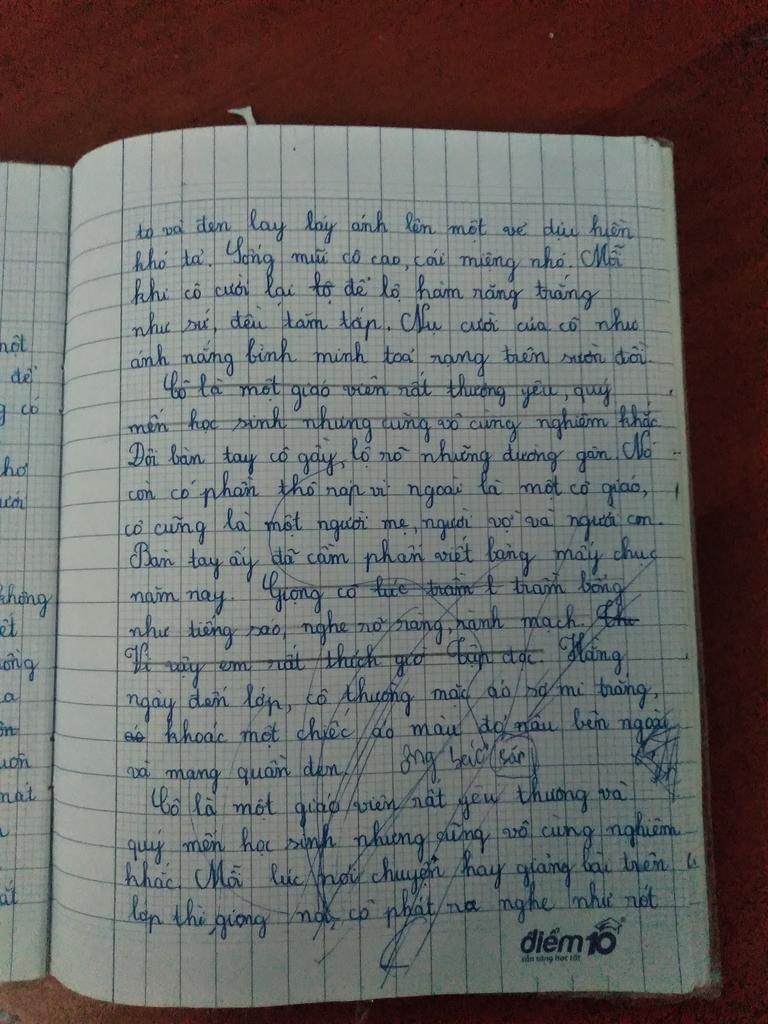 to và đen lay láy ánh lên một vẻ dịu hiền
khó tả. Sống mũi cô cao, cái miệng nhỏ. Mỗi
khi cô cười lại tộ để lộ hàm răng trắng
như sứ, đều tăm tắp. Nụ cười của cô như
ánh nắng bình minh toả rạng trên sườn đồi.
Cô là một giáo viên rất thương yêu, quý
mến học sinh nhưng cũng vô cùng nghiêm khắc
Đôi bàn tay cô gầy, lộ rõ những đường gân. Nó
còn có phần thô ráp vì ngoài là một cô giáo,
cô cũng là một người mẹ, người vợ và người con.
Bàn tay ấy đã cầm phấn viết bảng mấy chục
năm nay. Giọng cô lúc trầm t trầm bổng
như tiếng sáo, nghe rõ ràng, rành mạch.
Vì vậy em rất thích giờ tập đọc. Hằng
ngày đến lớp, cô thường mặc áo sơ mi trắng,
áo khoác một chiếc áo màu đỏ nâu bên ngoài
và mang quần đen. ông bác sáp
Cô là một giáo viên rất yêu thương và
quý mến học sinh nhưng cũng vô cùng nghiêm
khắc. Mỗi lúc nói chuyện hay giảng bài trên
lớp thì giọng nói cô phát ra nghe như rót
điểm 10
sẵn sàng học tốt
một
để
có
không